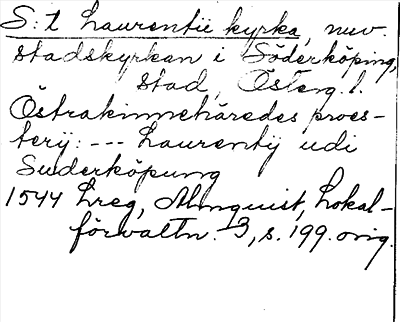 S:t Laurentii kyrka, nuv.
stadskyrkan i Söderköping,
stad, Österg. l.
Östrakinnehäredes proes-
terij: --- Laurentij udi
Suderköpung
1544 Lreg, Almquist, Lokal-
förvaltn. 3, s. 199. orig.